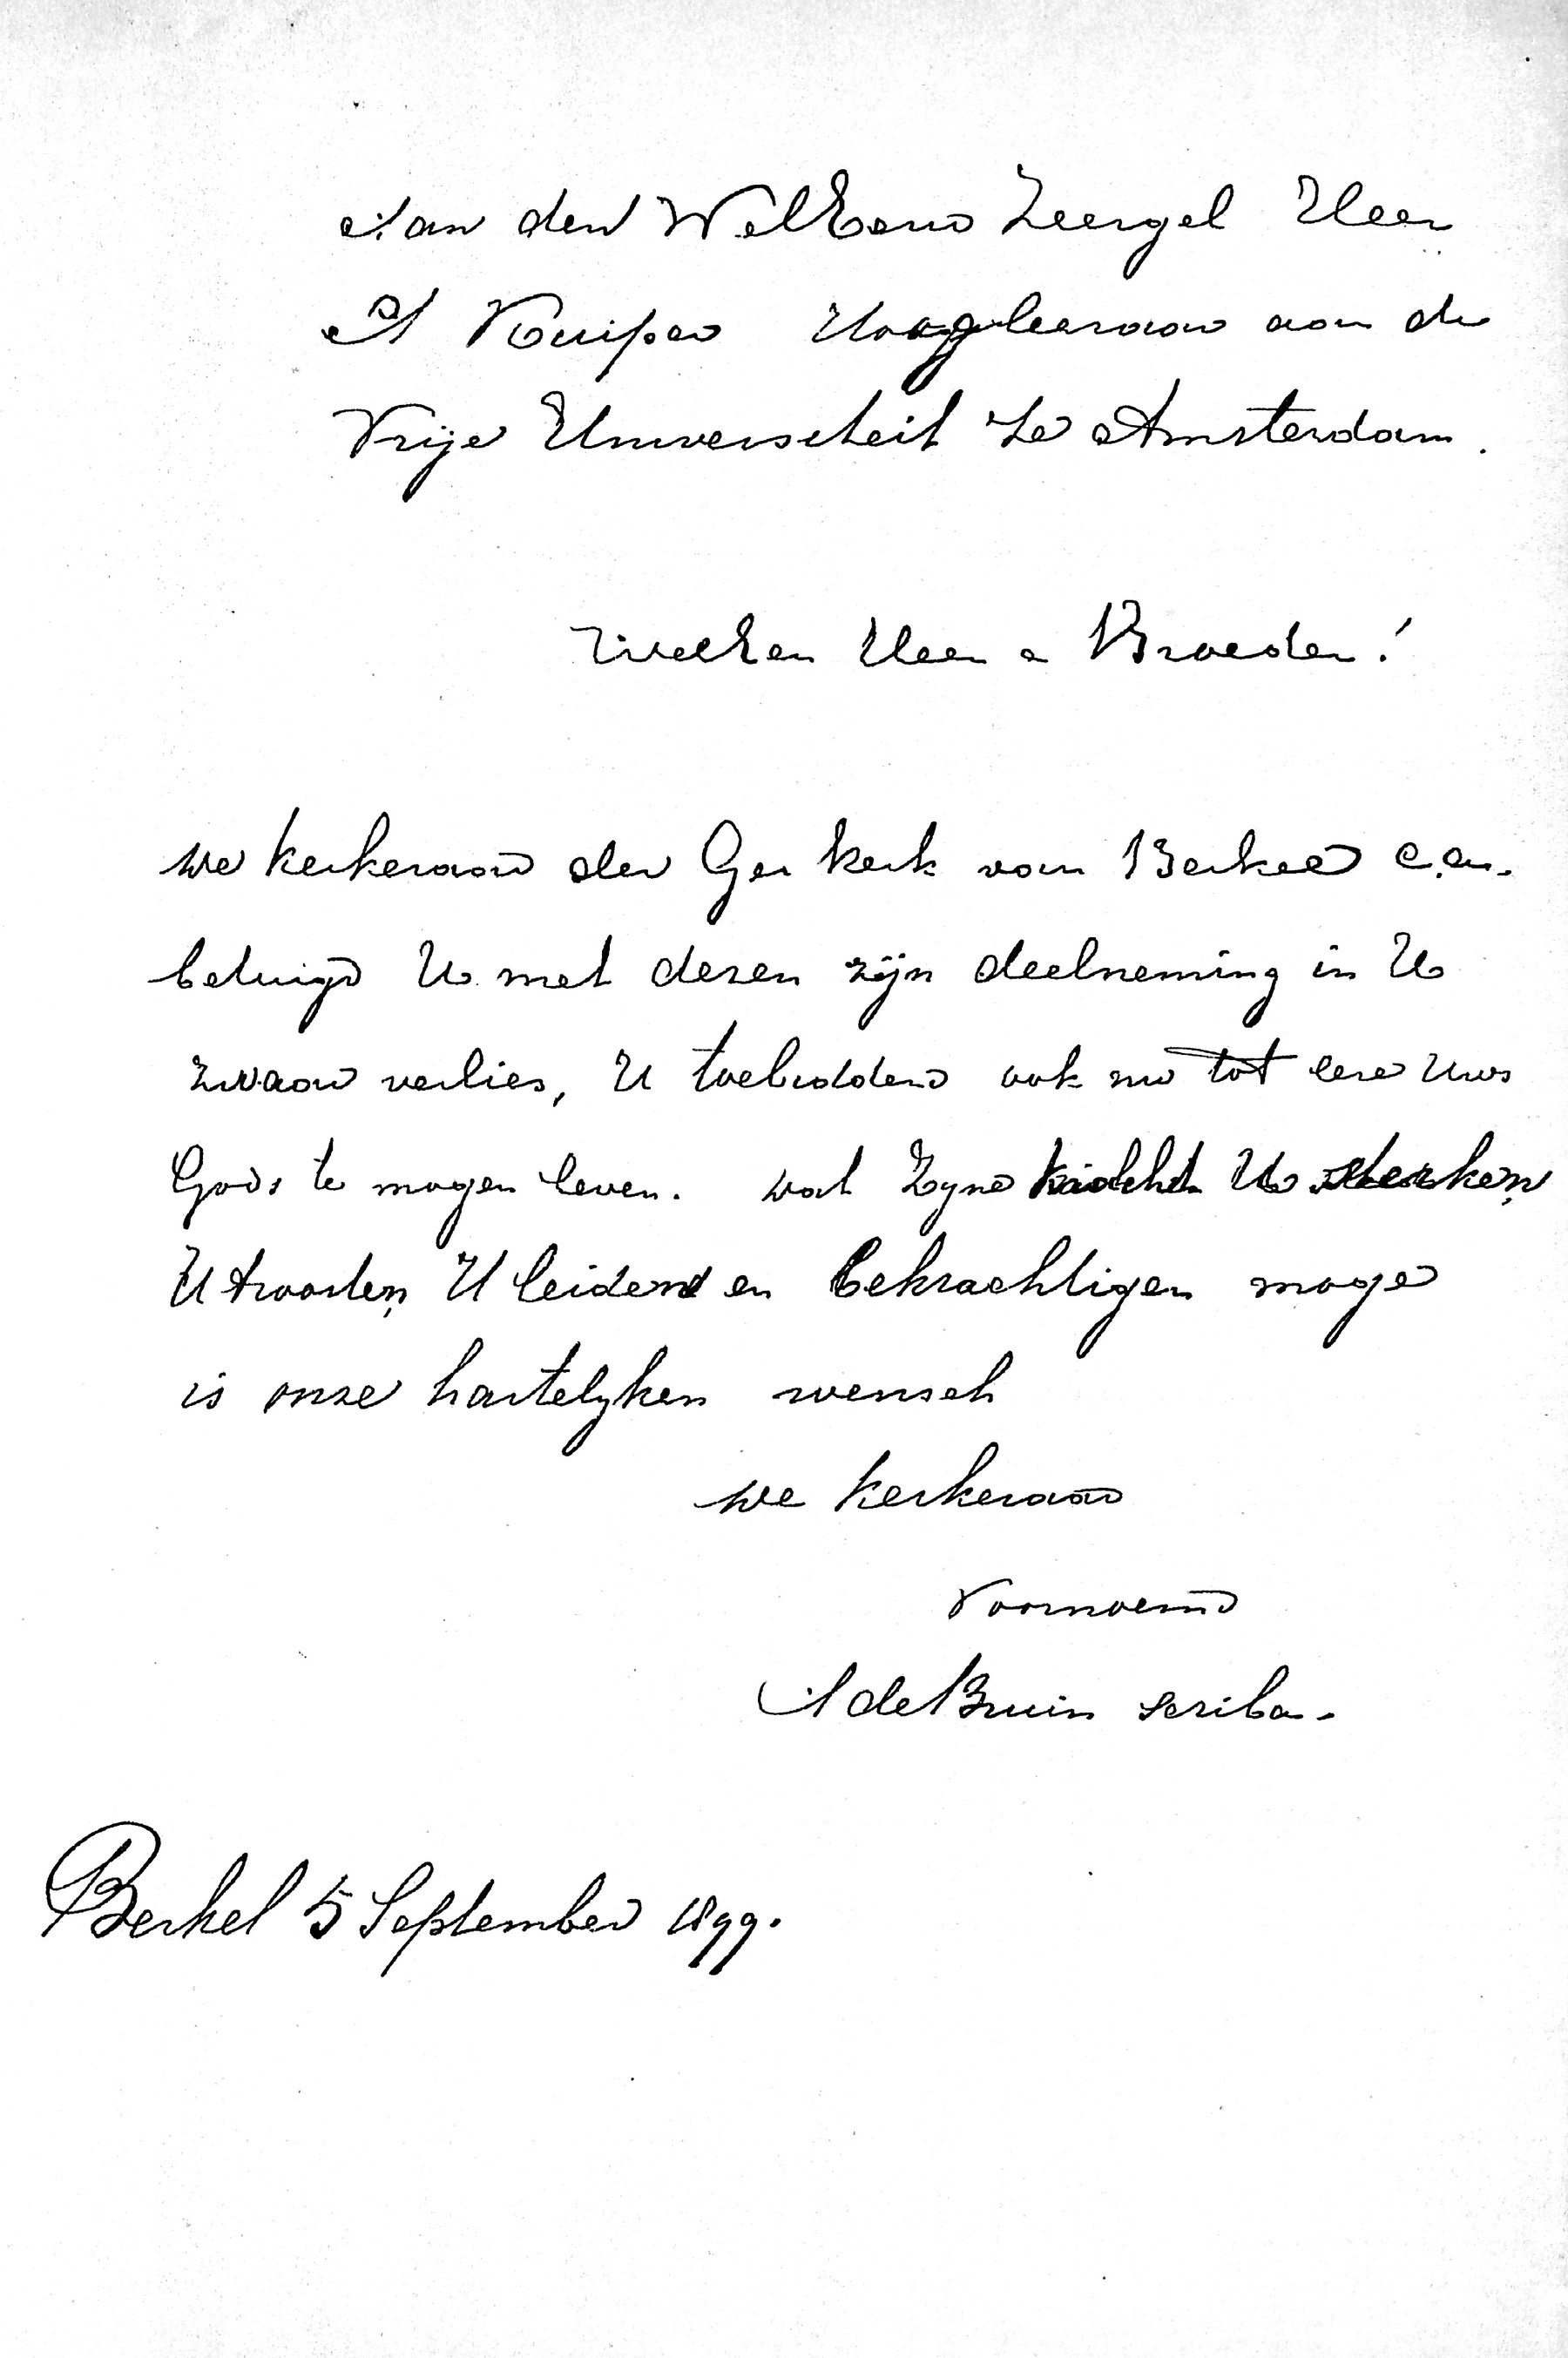 Aan den WelEerw Zeergel Heer
A Kuiper Hoogleeraar aan de
Vrije Universiteit te Amsterdam.
Waarde Heer en Broeder!
De kerkeraad der Ger kerk van Berkel c.a.
betuigd U met dezen zijn deelneming in U
zwaar verlies, U toebiddend ook nu tot eere Uws
Gods te mogen leven. Dat Zyne kracht U sterken
U troosten, U leiden en bekrachtigen moge
is onze hartelyken wensch
De kerkeraad
Voornoemd
A de Bruin scriba.
Berkel 5 September 1899.